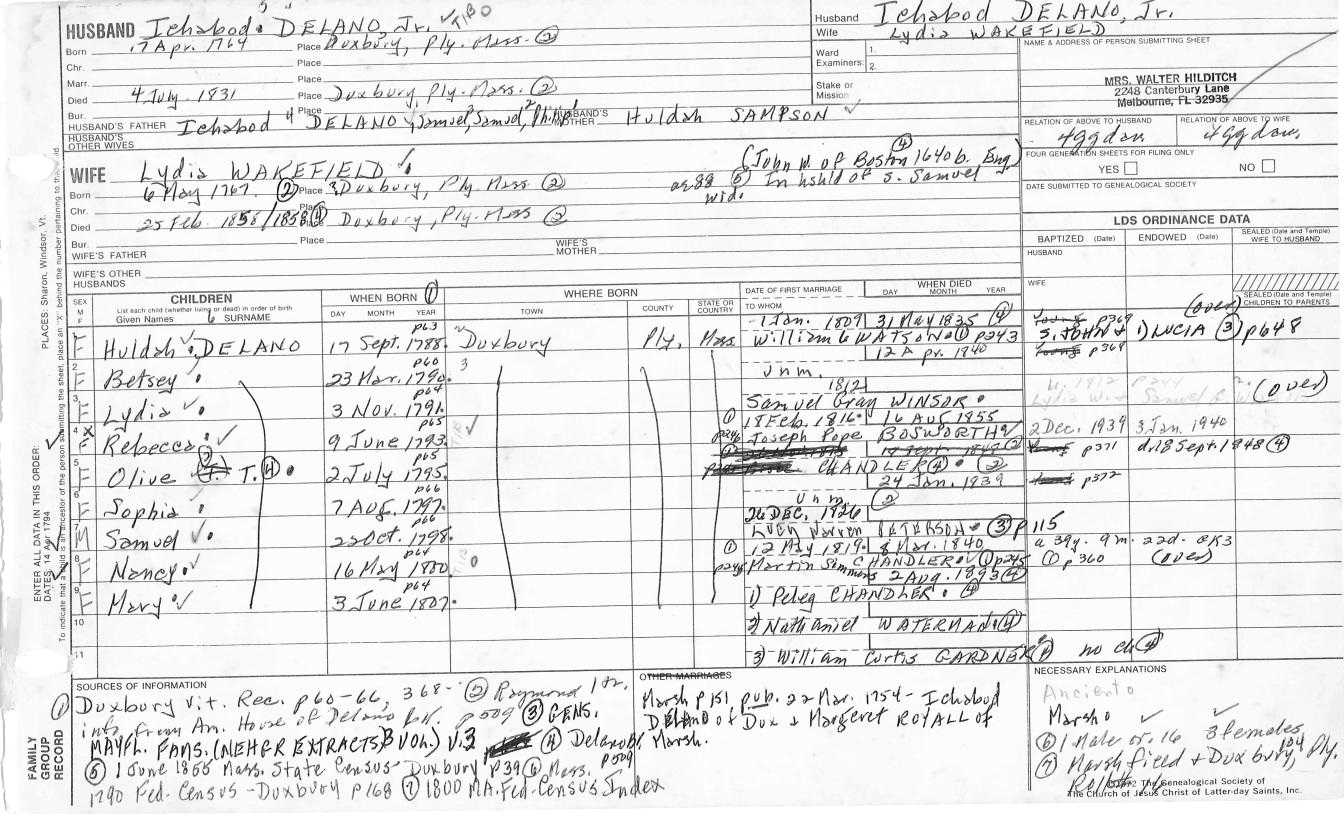 HUSBAND Ichabod DELANO, Jr.
Born 17 Apr. 1764 Place Duxbury, Ply. Mass. (2)
Chr. Place
Marr. Place
Died 4 July 1831 Place Duxbury, Ply. Mass. (2)
Bur. Place
HUSBAND'S FATHER Ichabod 4 DELANO, Samuel, 3 Samuel, 2 Philip 1 HUSBAND'S MOTHER Huldah SAMPSON
HUSBAND'S OTHER WIVES
WIFE Lydia WAKEFIELD (John W. of Boston 1640 b. Eng) (4)
Born 6 May 1767 (2) Place Duxbury, Ply. Mass (2) ag 88 (5) In hshld of s. Samuel
Chr. Place wid.
Died 25 Feb. 1858/1858 (4) Place Duxbury, Ply. Mass (2)
Bur. Place
WIFE'S FATHER WIFE'S MOTHER
WIFE'S OTHER HUSBANDS
Husband Ichabod DELANO, Jr.
Wife Lydia WAKEFIELD
Ward Examiners: 1. 2.
Stake or Mission
NAME & ADDRESS OF PERSON SUBMITTING SHEET
MRS. WALTER HILDITCH
2248 Canterbury Lane
Melbourne, FL 32935
RELATION OF ABOVE TO HUSBAND RELATION OF ABOVE TO WIFE
4ggdau. 4ggdau.
FOUR GENERATION SHEETS FOR FILING ONLY
YES NO
DATE SUBMITTED TO GENEALOGICAL SOCIETY
LDS ORDINANCE DATA
BAPTIZED (Date) ENDOWED (Date) SEALED (Date and Temple) WIFE TO HUSBAND
HUSBAND
WIFE
SEALED (Date and Temple) CHILDREN TO PARENTS
SEX M F CHILDREN WHEN BORN (1) WHERE BORN DATE OF FIRST MARRIAGE WHEN DIED
List each child (whether living or dead) in order of birth
Given Names SURNAME DAY MONTH YEAR TOWN COUNTY STATE OR COUNTRY TO WHOM DAY MONTH YEAR
p63 1 Jan. 1809 31 May 1835 (4) p369 (over)
F Huldah DELANO 17 Sept. 1788 Duxbury Ply. Mass. William WATSON (1) p243 S. JOHN & 1) LUCIA (3) p648
2 p60 12 Apr. 1840 p369
F Betsey 23 Mar. 1790 unm.
3 p64 1812
F Lydia 3 Nov. 1791 Samuel Gray WINSOR (over)
4 X p65 (1) 18 Feb. 1816 16 Aug 1855 2 Dec. 1939 3 Jan. 1940
F Rebecca 9 June 1793 p246 Joseph Pope BOSWORTH
5 p65 p371 d. 18 Sept. 1848 (4)
F Olive T. (4) 2 July 1795 CHANDLER (4) (2)
6 p66 24 Jan. 1839 p372
F Sophia 7 Aug. 1797 unm. (2)
7 p66 26 DEC. 1826
M Samuel 22 Oct. 1798 Lucy Warren PETERSON (3) p115
8 p64 (1) 12 May 1819 8 Mar. 1840 a 39y. 9m. 22d.
F Nancy 16 May 1800 Martin Simmons CHANDLER (1) p245 (1) p360 (over)
9 p64 2 Aug. 1893 (4)
F Mary 3 June 1807 1) Peleg CHANDLER (4)
10 2) Nathaniel WATERMAN (4)
11 3) William Curtis GARDNER no ch (4)
SOURCES OF INFORMATION
(1) Duxbury Vit. Rec. p60-66, 368- (2) Raymond
info from Am. House of Delano bk. p509 (3) GENS.
MAYFL. FAMS. (NEHGR EXTRACTS 3 VOL.) V.3 (4) Delano
(5) 1 June 1855 Mass. State Census - Duxbury p39 (6) Mass. p509
1790 Fed. Census - Duxbury p168 (7) 1800 MA. Fed. Census Index
OTHER MARRIAGES
Marsh p151, pub. 22 Mar. 1754 - Ichabod
DELANO of Dux & Margeret ROYALL of
Marsh.
NECESSARY EXPLANATIONS
Ancient
Marsh
(6) 1 Male or. 16 3 females
(7) Marshfield & Duxbury, Ply.
The Genealogical Society of
The Church of Jesus Christ of Latter-day Saints, Inc.
FAMILY GROUP RECORD
ENTER ALL DATA IN THIS ORDER:
DATES: 14 Apr 1794
PLACES: Sharon, Windsor, Vt.
To indicate that a child is an ancestor of the person submitting the sheet, place an "X" behind the number pertaining to that child.